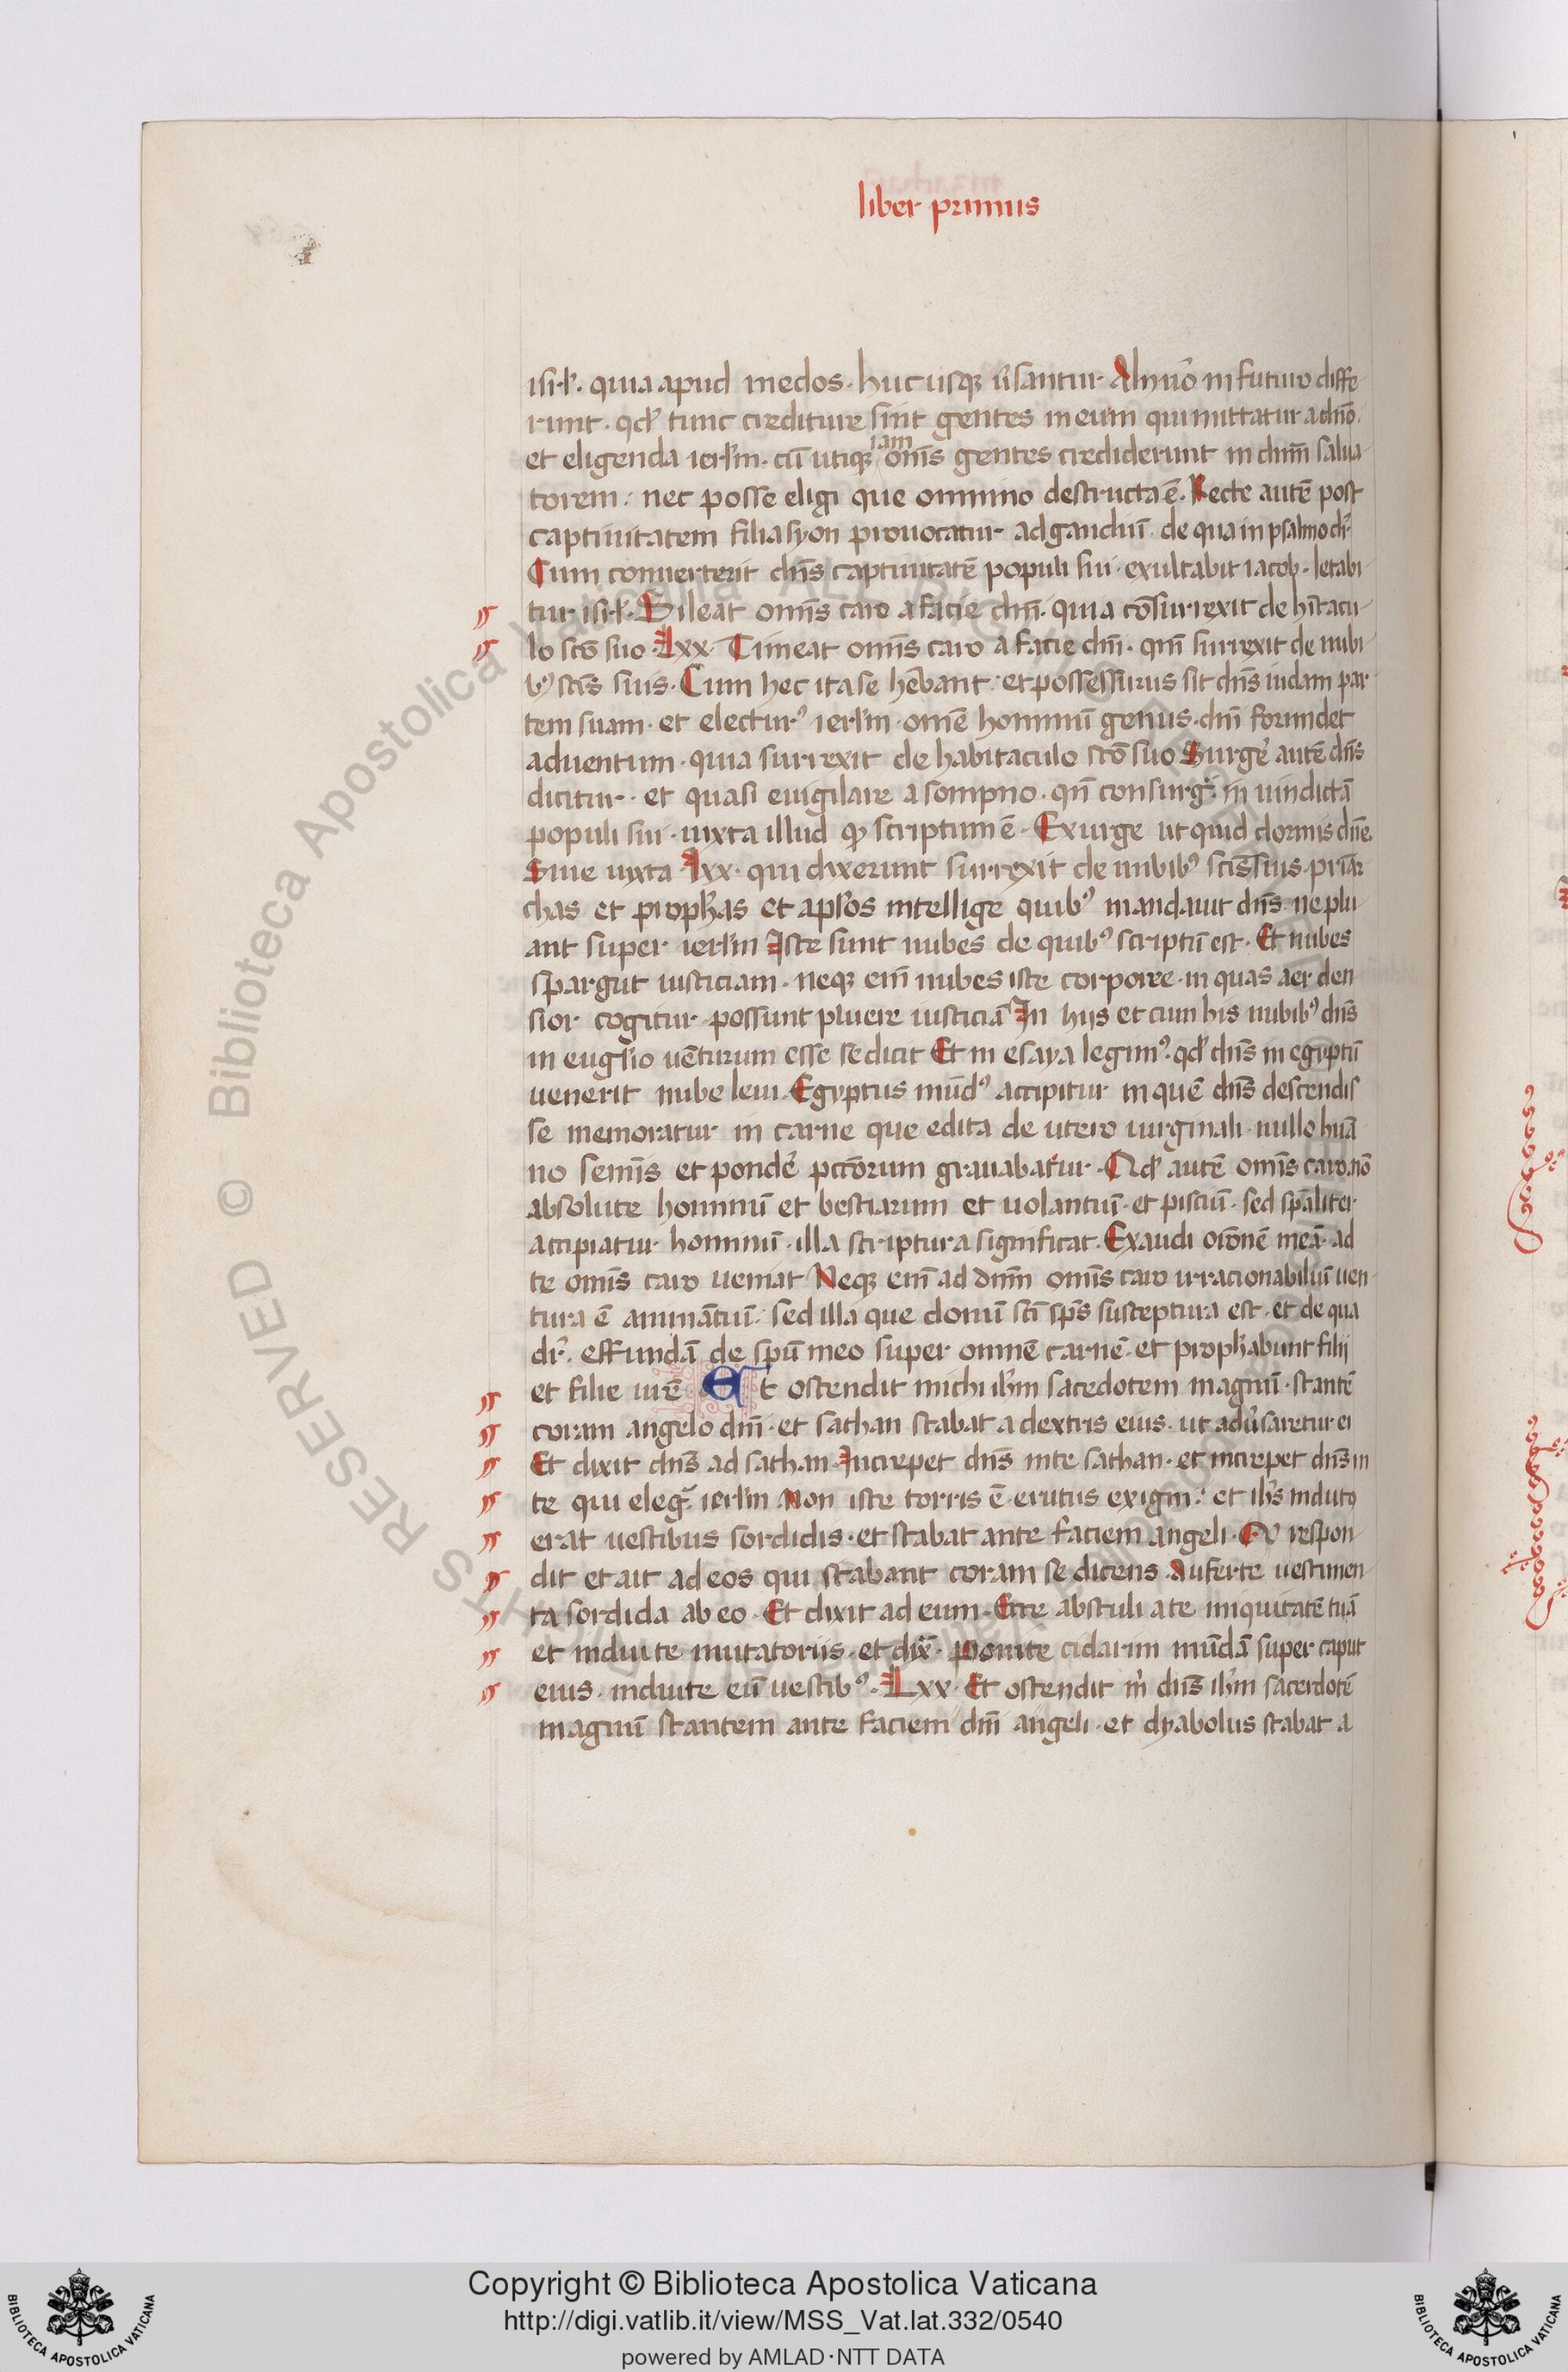 liber primus
isrl̄. quia apud medos. huc usqꝫ ūsantur. Alij uō in futuro diffe-
runt. qd̄ tunc crediture sint gentes in eum qui mittatur a dnō.
et eligenda ierlm̄. cū utiqꝫ iam om̄s gentes crediderunt in dnm̄ salua-
torem. nec posse eligi que omnino destructa ē. Recte autē post
captiuitatem filia syon prouocatur ad gaudiū. de qua in psalmo dr̄.
Cum conuerterit dn̄s captiuitatē populi sui. exultabit iacob. letabi-
tur isrl̄. Sileat om̄is caro a facie dn̄i. quia cōsurrexit de hītacu-
lo scō suo. Lxx. Timeat om̄is caro a facie dn̄i. qm̄ surrexit de nubi-
bꝰ scīs suis. Cum hec ita se hēbant. et possessurus sit dn̄s iudam par-
tem suam. et electurꝰ ierlm̄. om̄e hominū genus. dn̄i formidet
aduentum. quia surrexit de habitaculo scō suo Surgē autē dn̄s
dicitur. et quasi euigilare a sompno. qn̄ consurgit in uindictā
populi sui. iuxta illud qd̄ scriptum ē. Exurge ut quid dormis dn̄e.
Siue iuxta Lxx. qui dixerunt surrexit de nubibꝰ scīs suis. priar-
chas et prophās et apl̄os intellige quibꝰ mandauit dn̄s. ne plu-
ant super ierlm̄ Iste sunt nubes de quibꝰ scriptū est. Et nubes
spargūt iusticiam. neqꝫ em̄ nubes iste corporee. in quas aer den-
sior cogitur possunt pluere iusticiā In hijs et cum his nubibꝰ dn̄s
in euglio uēturum esse se dicit Et in esaya legimꝰ. qd̄ dn̄s in egyptū
uenerit nube leui. Egyptus mūdꝰ accipitur in quē dn̄s descendis-
se memoratur in carne que edita de utero uirginali. nullo humā-
no semīs et pondē pcc̄orum grauabatur. Qd̄ autē om̄is caro. nō
absolute hominū et bestiarum et uolantiū. et pisciū. sed sp̄aliter
accipiatur hominū. illa scriptura significat. Exaudi orōnē meā. ad
te om̄is caro ueniat Neqꝫ em̄ ad dnm̄ om̄is caro irracionabiliū uen-
tura ē animātiū. sed illa que donū scī sp̄s susceptura est. et de qua
dr̄. effundā de sp̄u meo super omnē carnē. et prophabunt filij
et filie ur̄e Et ostendit michi ihm̄ sacedotem magnū. stantē
coram angelo dn̄i. et sathan stabat a dextris eius. ut adūsaretur ei
Et dixit dn̄s ad sathan Increpet dn̄s in te sathan. et increpet dn̄s in
te qui elegit ierlm̄ Non iste torris ē erutus ex igne. et ihs̄ indutꝰ
erat uestibus sordidis. et stabat ante faciem angeli. Qui respon-
dit et ait ad eos qui stabant coram se dicens Auferte uestimen-
ta sordida ab eo. Et dixit ad eum. Ecce abstuli a te iniquitatē tuā
et indui te mutatoriis. et dix̄. Ponite cidarim mūdā super caput
eius. induite eū uestibꝰ. Lxx. Et ostendit m̄ dn̄s ihm̄ sacerdotē
magnū stantem ante faciem dn̄i angeli. et dyabolus stabat a
Copyright © Biblioteca Apostolica Vaticana
http://digi.vatlib.it/view/MSS_Vat.lat.332/0540
powered by AMLAD·NTT DATA
BIBLIOTECA APOSTOLICA VATICANA
BIBLIOTECA APOSTOLICA VATICANA